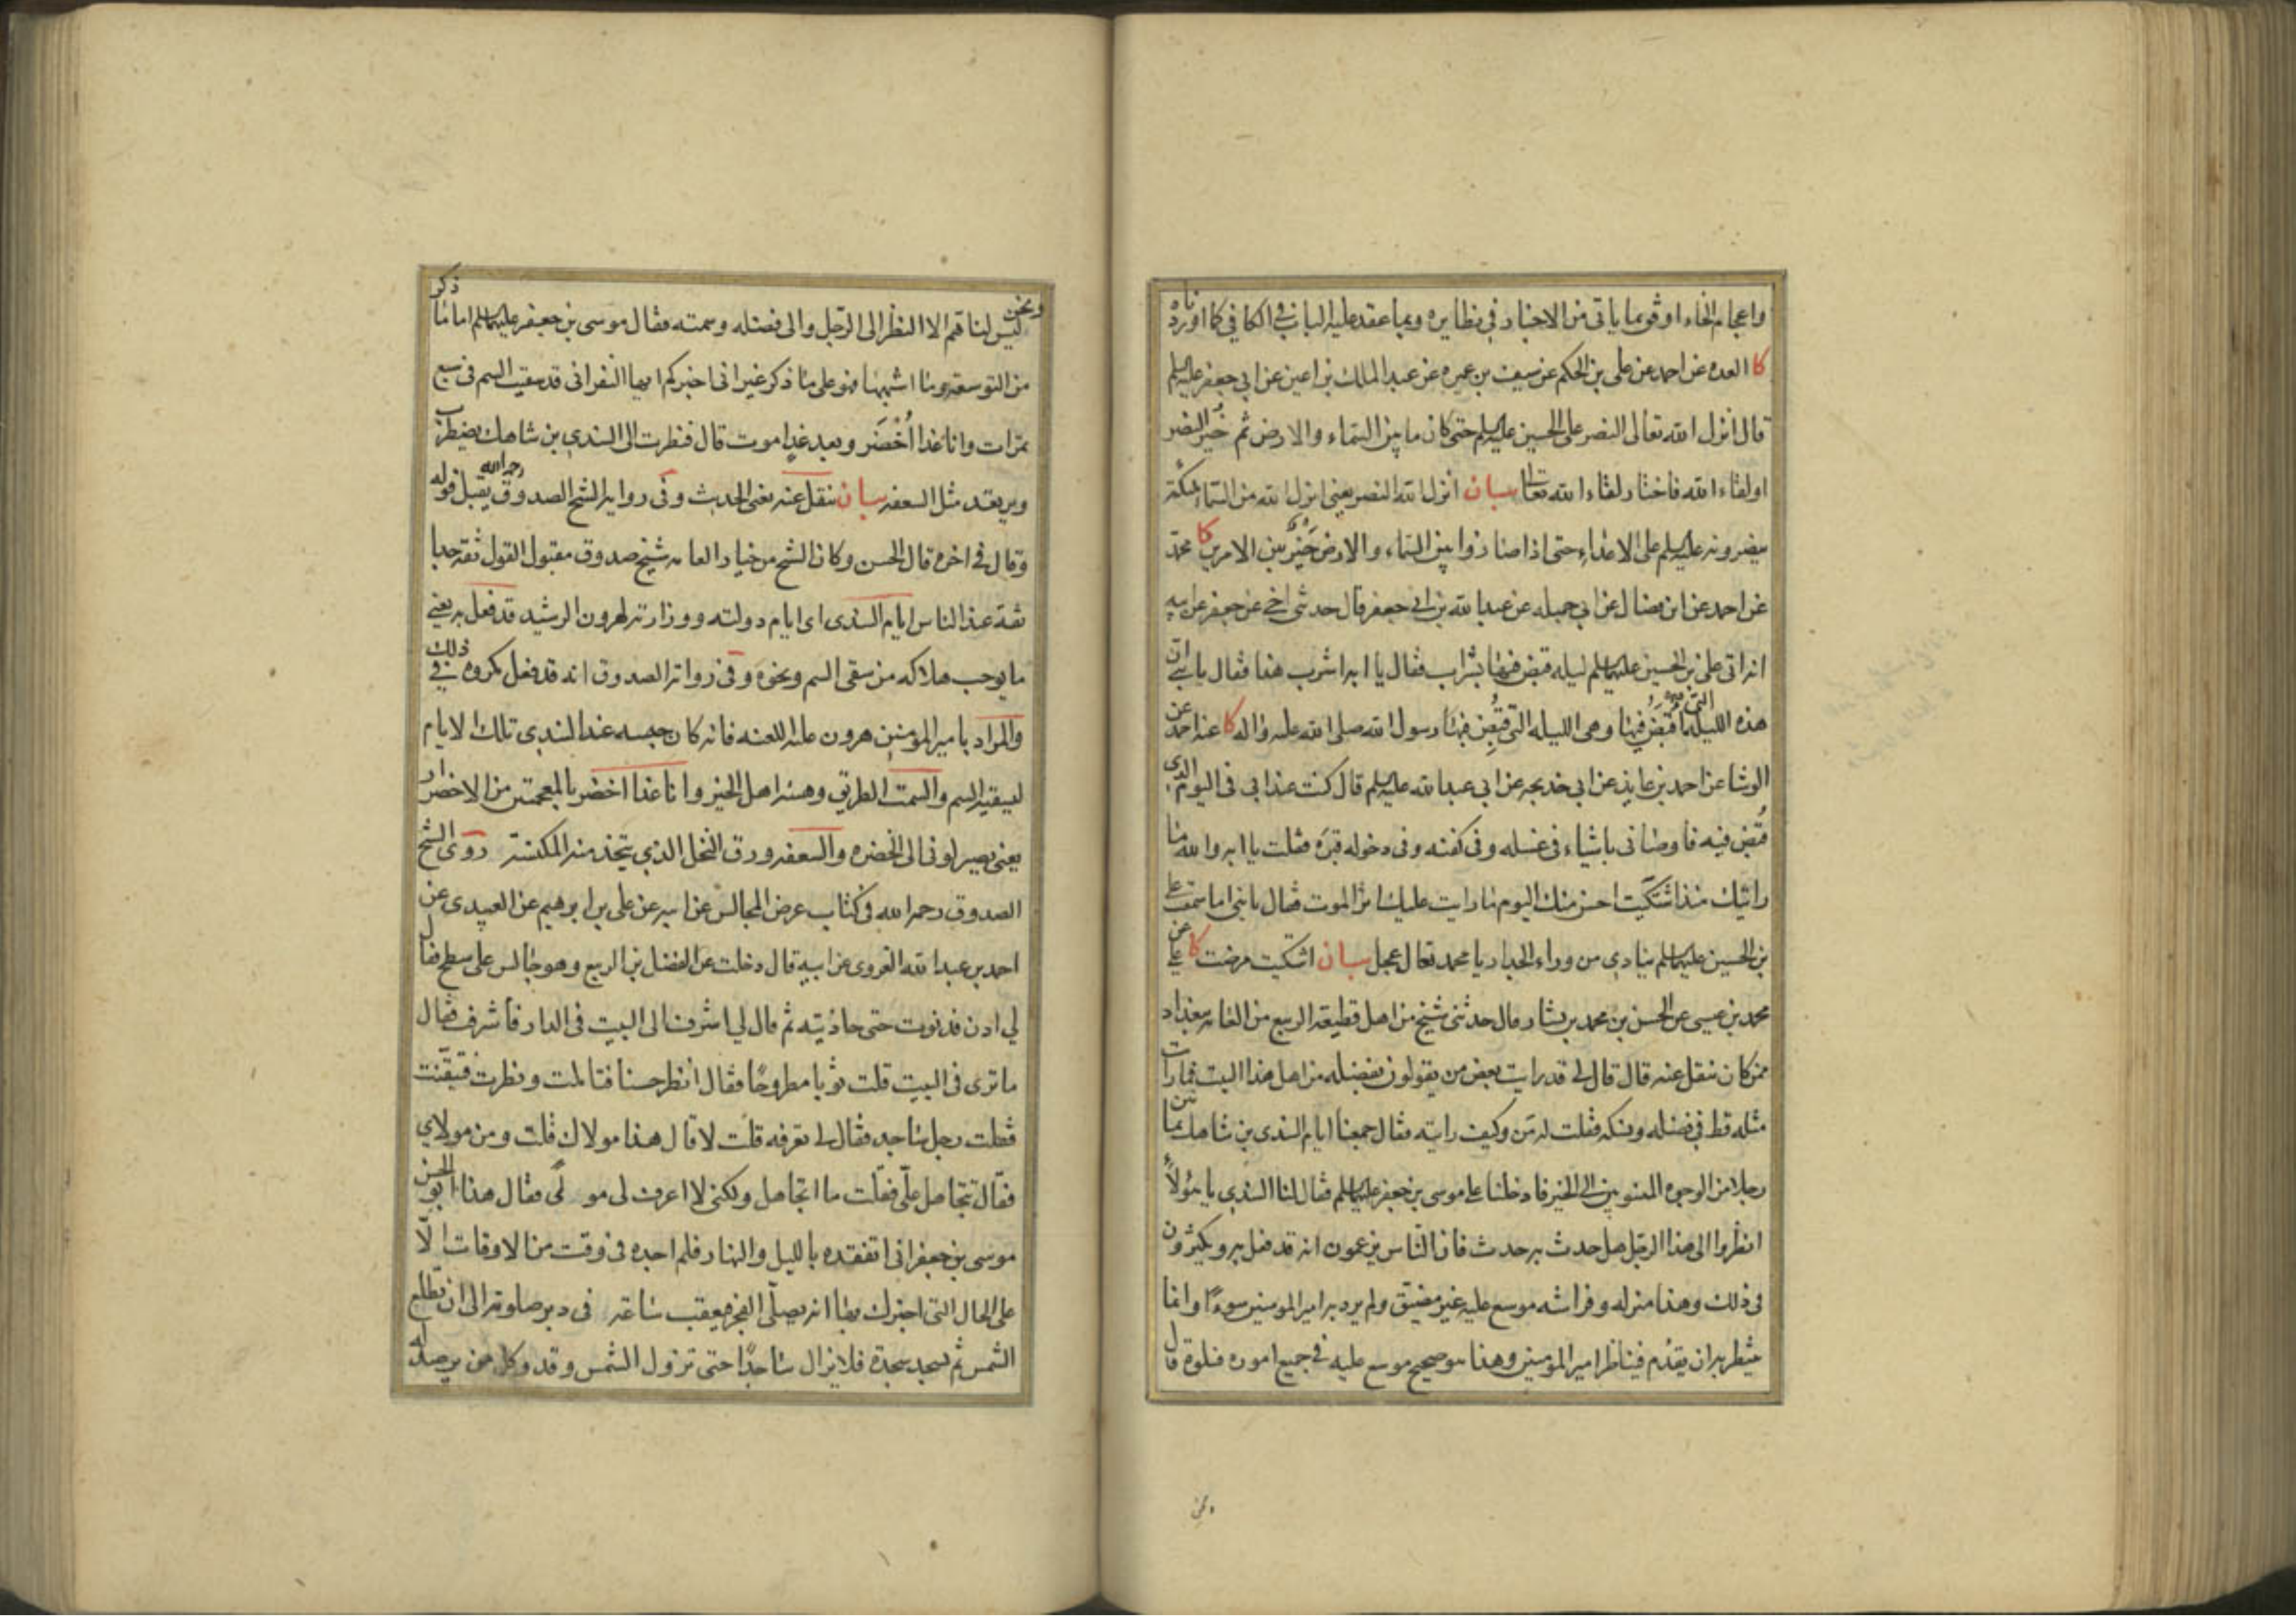 واعجام الخاء اوفق بما ياتى من الاخبار فى نظايره وبما عقد عليه الباب فى الكافى كما اوردناه
كا العده عن احمد عن على بن الحكم عن سيف بن عميره عن عبد الملك بن اعين عن ابى جعفر عليه السلم
قال انزل الله تعالى النصر على الحسين عليه السلم حتى كان ما بين السماء والارض ثم خُيّر النصر
او لقاء الله فاختار لقاء الله تعالى بيان انزل الله النصر يعنى انزل الله من السماء ملئكة
ينصرونه عليه السلم على الاعداء حتى اذا صاروا بين السماء والارض خُيّر بين الامرين كا محمد
عن احمد عن ابن فضال عن ابى جميله عن عبد الله بن ابى جعفر قال حدثنى اخى عن جعفر عن ابيه
انه اتى على بن الحسين عليهما السلم ليله قبض فيها بشراب فقال يا ابه اشرب هذا فقال يا بنى ان
هذه الليلة التى اقبض فيها وهى الليله التى قبض فيها رسول الله صلى الله عليه واله كا عنه عن احمد عن
الوشا عن احمد بن عايذ عن ابى خديجه عن ابى عبد الله عليه السلم قال كنت عند ابى فى اليوم الذى
قُبض فيه فاوصانى باشياء فى غسله وفى كفنه وفى دخوله قبرَه فقلت يا ابه والله ما
رايتك منذ اشتكيت احسن منك اليوم ما رايت عليك اثر الموت فقال يا بنى اما سمعت على
بن الحسين عليهما السلم ينادى من وراء الجدار يا محمد تعال عجل بيان اشتكيت مرضت كا على عن
محمد بن عيسى عن الحسن بن محمد بن بشار قال حدثنى شيخ من اهل قطيعة الربيع من العامه ببغداد
ممن كان ينقل عنه قال قال لى قد رايت بعض من يقولون بفضله من اهل هذا البيت فما رايت
مثله قط فى فضله ونسكه فقلت له من وكيف رايته فقال جمعنا ايام السندى بن شاهك ثمانين
رجلا من الوجوه المنسوبين الى الخير فادخلنا على موسى بن جعفر عليهما السلم فقال لنا السندى يا هؤلاء
انظروا الى هذا الرجل هل حدث به حدث فان الناس يزعمون انه قد فعل به ويكثرون
فى ذلك وهذا منزله وفراشه موسع عليه غير مضيق ولم يرد به امير المومنين سوءًا وانما
ينتظر به ان يقدم فيناظر امير المؤمنين وهذا هو صحيح موسع عليه فى جميع اموره فسلوه قال
ونحن
ونحن ليس لنا هم الا النظر الى الرجل والى فضله وسمته فقال موسى بن جعفر عليهما السلم اما ما ذكر
من التوسعه وما اشبهها فهو على ما ذكر غير انى اخبركم ايها النفر انى قد سقيت السم فى سبع
تمرات وانا غدا اُخضَر وبعد غدٍ اموت قال فنظرت الى السندى بن شاهك يضطرب
ويرتعد مثل السعفه بيان ينقل عنه يعنى الحديث وفى رواية الشيخ الصدوق رحمه الله يقبل قوله
وقال فى اخره قال الحسن وكان الشيخ من خيار العامه شيخ صدوق مقبول القول ثقه جدا
ثقة عند الناس ايام السندى اى ايام دولته ووزارته لهرون الرشيد قد فعل به يعنى
ما يوجب هلاكه من سقى السم ونحوه وفى رواية الصدوق انه قد فعل مكروه فى ذلك
والمراد بامير المؤمنين هرون عليه اللعنه فانه كان حبسه عند السندى تلك الايام
ليسقيه السم والسمت الطريق وهيئه اهل الخير وانا غدا اخضر بالمعجمتين من الاخضرار
يعنى يصير لونى الى الخضره والسعفه ورق النخل الذى يتخذ منه المكنسة روى الشيخ
الصدوق رحمه الله فى كتاب عرض المجالس عن ابيه عن على بن ابرهيم عن العبيدى عن
احمد بن عبد الله الغروى عن ابيه قال دخلت عن الفضل بن الربيع وهو جالس على سطح فقال
لى ادن فدنوت حتى حاذيته ثم قال لى اشرف الى البيت فى الدار فاشرفت فقال
ما ترى فى البيت قلت ثوبا مطروحًا فقال انظر حسنا فتاملت ونظرت فتيقنت
فقلت رجل ساجد فقال لى تعرفه قلت لا قال هذا مولاك قلت ومن مولاى
فقال تتجاهل علّى فقلت ما اتجاهل ولكنى لا اعرف لى مولىً فقال هذا ابو الحسن
موسى بن جعفر انى اتفقده بالليل والنهار فلم اجده فى وقت من الاوقات الّا
على الحال التى اخبرك بها انه يصلّى الفجر فيعقب ساعة فى دبر صلوته الى ان تطلع
الشمس ثم يسجد سجدة فلا يزال ساجدًا حتى تزول الشمس وقد وكل من يرصد له